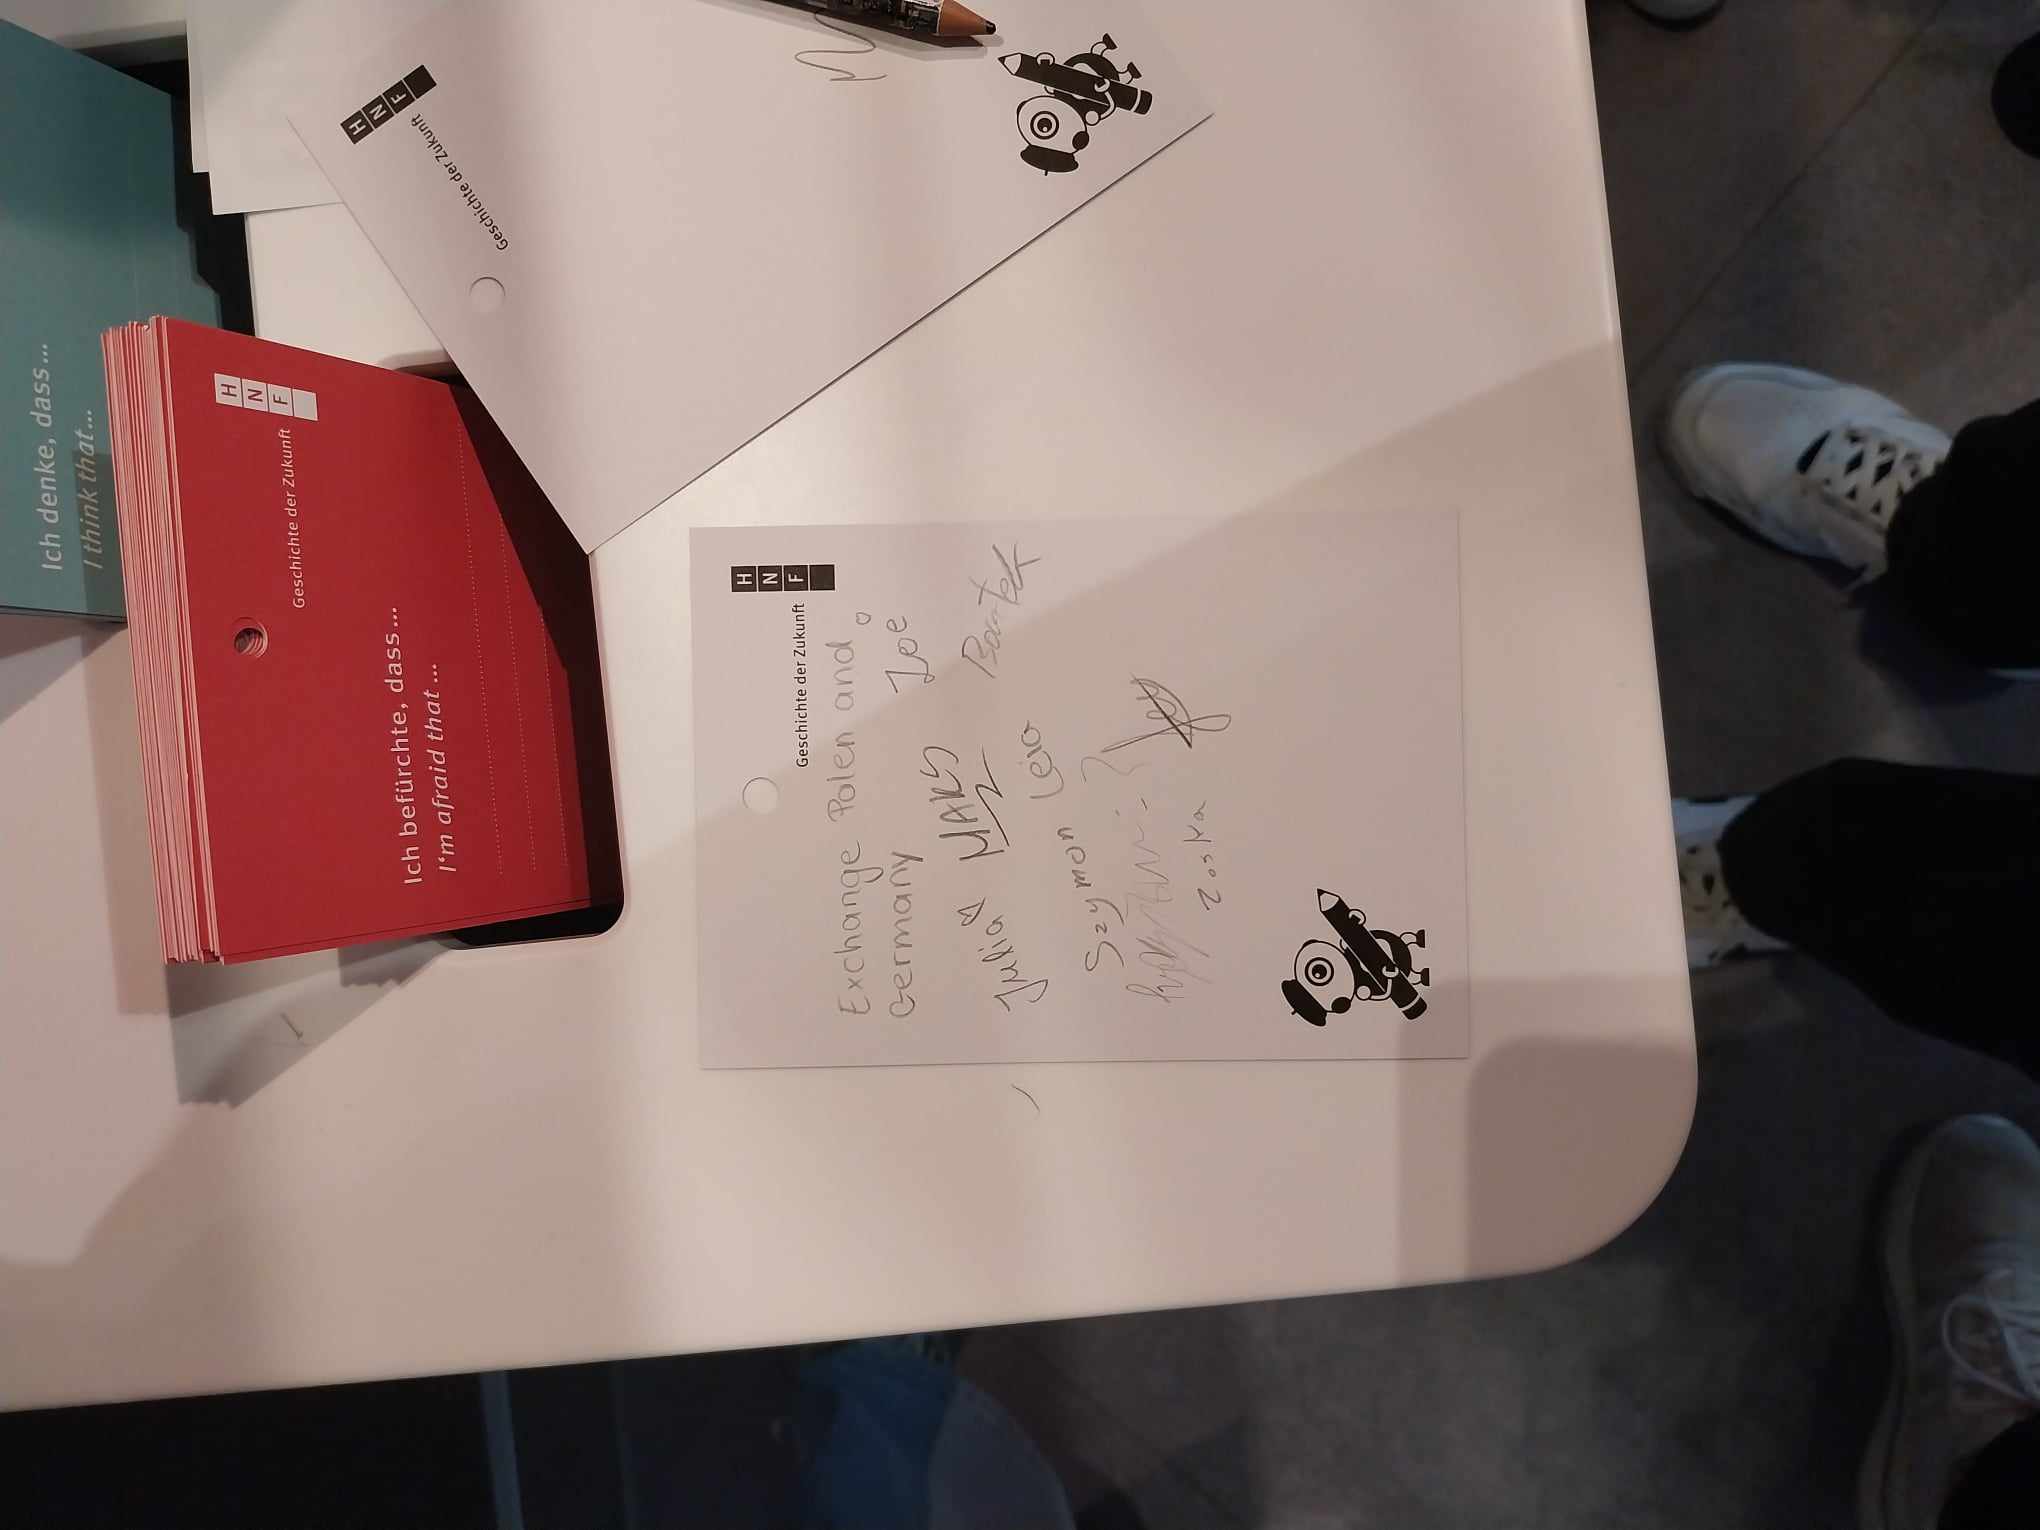 Ich denke, dass...
I think that...
HNF
Geschichte der Zukunft
Ich befürchte, dass...
I'm afraid that...
HNF
Geschichte der Zukunft
HNF
Geschichte der Zukunft
Exchange Polen and
Germany
Zoe
Julia MAKS Bartek
Szymon
Zoska